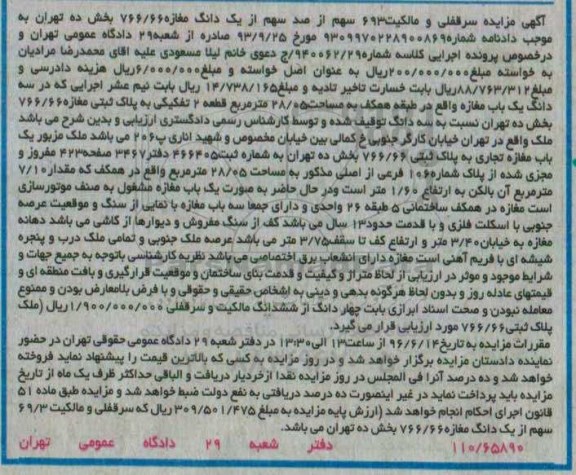 آگهی مزایده سرقفلی و مالکیت۶۹۳ سهم از صد سهم از یک دانگ مغازه۷۶۶/۶۶ بخش ده تهران به
موجب دادنامه شماره۹۳۰۹۹۷۰۲۲۸۹۰۰۸۶۹ مورخ ۹۳/۹/۲۵ صادره از شعبه۲۹ دادگاه عمومی تهران و
درخصوص پرونده اجرایی کلاسه شماره۹۴۰۰۶۲/۲۹/ج دعوی خانم لیلا مسعودی علیه اقای محمدرضا مرادیان
به خواسته مبلغ۲۰۰/۰۰۰/۰۰۰ریال به عنوان اصل خواسته و مبلغ۶/۰۰۰/۰۰۰ریال هزینه دادرسی و
مبلغ۸۸/۷۶۳/۳۱۲ریال بابت خسارت تاخیر تادیه و مبلغ۱۴/۷۳۸/۱۶۵ ریال بابت نیم عشر اجرایی که در سه
دانگ یک باب مغازه واقع در طبقه همکف به مساحت۲۸/۰۵ مترمربع قطعه ۲ تفکیکی به پلاک ثبتی مغازه۷۶۶/۶۶
بخش ده تهران نسبت به سه دانگ توقیف شده و توسط کارشناس رسمی دادگستری ارزیابی و بدین شرح می باشد
ملک واقع در تهران خیابان کارگر جنوبی خ کمالی بین خیابان مخصوص و شهید اناری پ۲۰۶ می باشد ملک مزبور یک
باب مغازه تجاری به پلاک ثبتی ۷۶۶/۶۶ بخش ده تهران به شماره ثبت۴۶۶۴۰۵ دفتر۳۴۶۷ صفحه۴۲۳ مفروز و
مجزی شده از پلاک شماره۱۰۶ فرعی از اصلی مذکور به مساحت ۲۸/۰۵ مترمربع واقع در همکف که مقدار۷/۱۰
مترمربع آن بالکن به ارتفاع ۱/۶۰ متر است ودر حال حاضر به صورت یک باب مغازه مشغول به صنف موتورسازی
است مغازه در همکف ساختمانی ۵ طبقه ۲۶ واحدی و دارای جمعا سه باب مغازه با نمایی از سنگ و موقعیت عرصه
جنوبی با اسکلت فلزی و با قدمت حدود۱۳ سال می باشد کف از سنگ مفروش و دیوارها از کاشی می باشد دهانه
مغازه به خیابان۳/۴۰ متر و ارتفاع کف تا سقف۳/۷۵ متر می باشد عرصه ملک جنوبی و تمامی ملک درب و پنجره
شیشه ای با فریم آهنی است مغازه دارای انشعاب برق اختصاصی می باشد نظریه کارشناسی باتوجه به جمیع جهات و
شرایط موجود و موثر در ارزیابی از لحاظ متراژ و کیفیت و قدمت بنای ساختمان و موقعیت قرارگیری و بافت منطقه ای و
قیمتهای عادله روز و بدون لحاظ هرگونه بدهی و دینی به اشخاص حقیقی و حقوقی و با فرض بلامعارض بودن و ممنوع
معامله نبودن و صحت اسناد ابرازی بابت چهار دانگ از ششدانگ مالکیت و سرقفلی ۱/۹۰۰/۰۰۰/۰۰۰ریال (ملک
پلاک ثبتی۷۶۶/۶۶ مورد ارزیابی قرار می گیرد.
مقررات مزایده به تاریخ۹۶/۶/۱۴ از ساعت۱۳ الی۱۳:۳۰ در دفتر شعبه ۲۹ دادگاه عمومی حقوقی تهران در حضور
نماینده دادستان مزایده برگزار خواهد شد و در روز مزایده به کسی که بالاترین قیمت را پیشنهاد نماید فروخته
خواهد شد و ده درصد آنرا فی المجلس در روز مزایده نقدا ازخردیار دریافت و الباقی حداکثر ظرف یک ماه از تاریخ
مزایده باید پرداخت نماید در غیر اینصورت ده درصد دریافتی به نفع دولت ضبط خواهد شد و مزایده طبق ماده ۵۱
قانون اجرای احکام انجام خواهد شد (ارزش پایه مزایده به مبلغ ۳۰۹/۵۰۱/۴۷۵ ریال که سرقفلی و مالکیت ۶۹/۳
سهم از یک دانگ مغازه۷۶۶/۶۶ بخش ده تهران می باشد.
۱۱۰/۶۵۸۹۰ دفتر شعبه ۲۹ دادگاه عمومی تهران